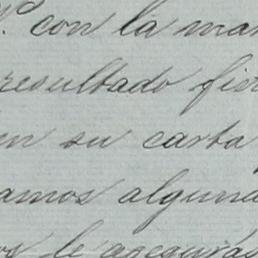 con la man
resultado fie
en su carta
amos alguna
os le asegurás